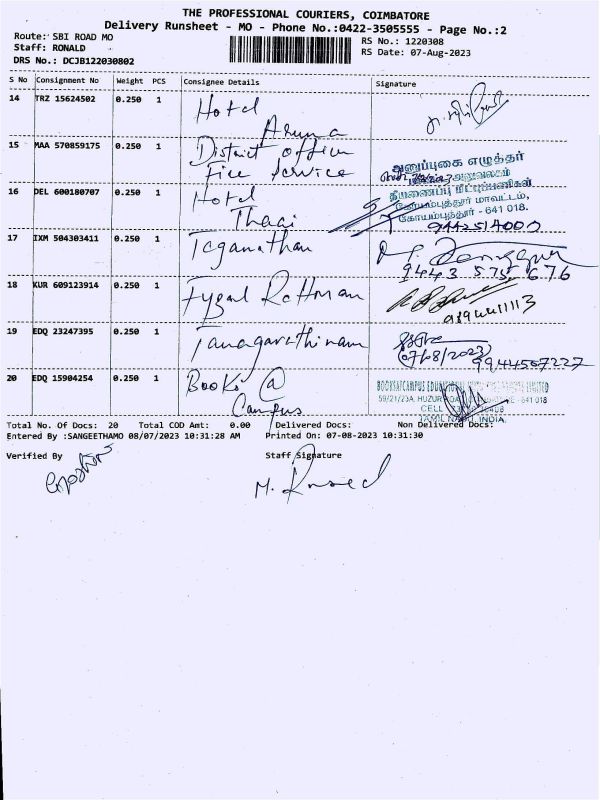 THE PROFESSIONAL COURIERS, COIMBATORE
Delivery Runsheet - MO - Phone No.:0422-3505555 - Page No.:2
Route: SBI ROAD MO
RS No.: 1220308
Staff: RONALD
RS Date: 07-Aug-2023
DRS No.: DCJB122030802
S No Consignment No Weight PCS Consignee Details Signature
14 TRZ 15624502 0.250 1 Hotel
Aruna
15 MAA 570859175 0.250 1 District office
fire service
அனுப்புகை எழுத்தர்
அலுவலகம்
கோயம்புத்தூர் மாவட்டம்,
கோயம்புத்தூர் - 641 018.
16 DEL 600180707 0.250 1 Hotel
Thaai
9442514000
17 IXM 504303411 0.250 1 Jeganathan
9443 575 676
18 KUR 609123914 0.250 1 Fyzal Rahman
19 EDQ 23247395 0.250 1 Tanagarathinam
07/08/2023
9944507227
20 EDQ 15904254 0.250 1 Books @
Campus
BOOKSATCAMPUS LIMITED
59/21/23A, HUZUR - 641 018
CELL
TAMIL NADU, INDIA.
Total No. Of Docs: 20 Total COD Amt: 0.00 Delivered Docs: Non Delivered Docs:
Entered By :SANGEETHAMO 08/07/2023 10:31:28 AM Printed On: 07-08-2023 10:31:30
Verified By Staff Signature